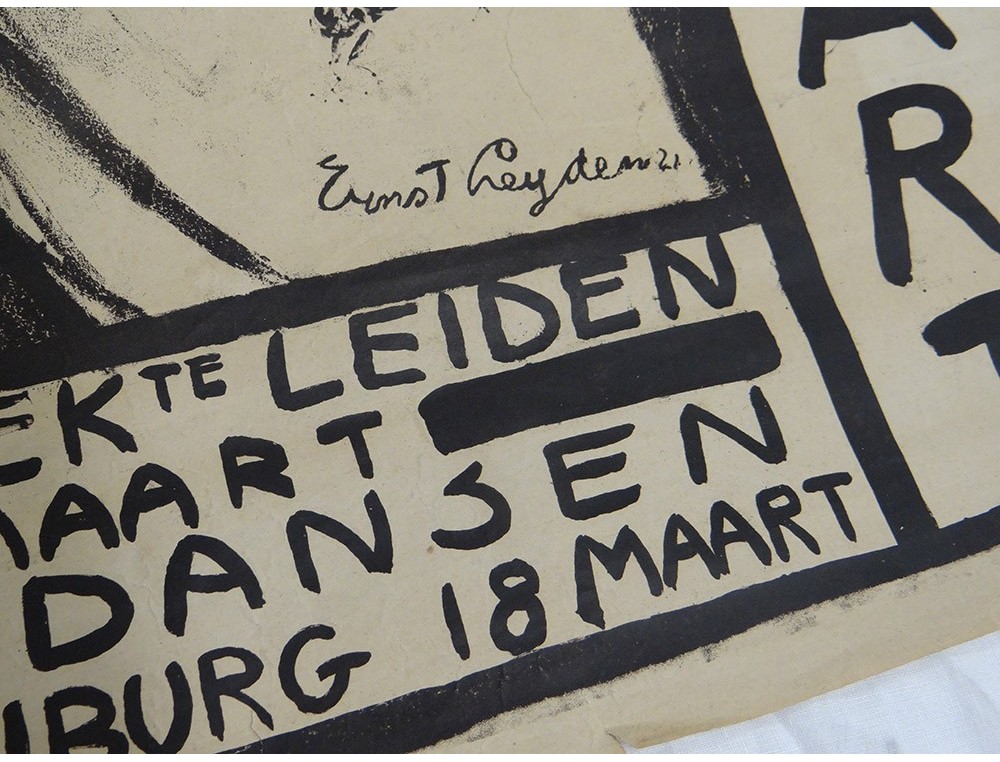 Ernst Leyden 21.
EK TE LEIDEN
MAART
DANSEN
BURG 18 MAART
A
R
T